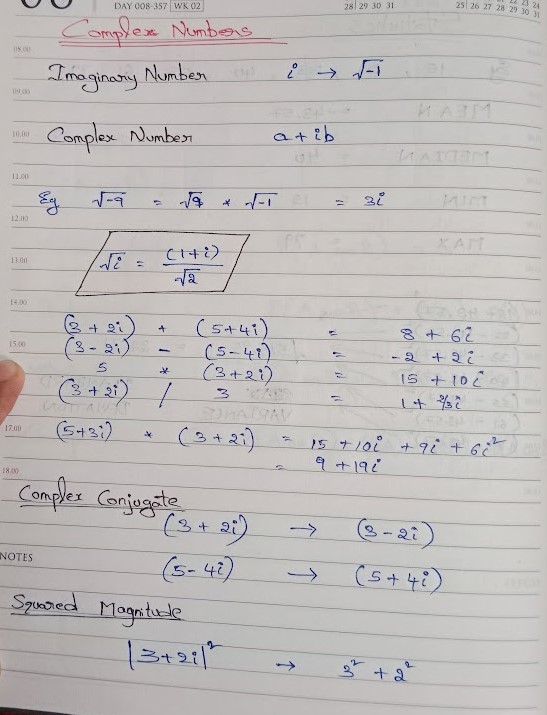 DAY 008-357 WK 02
28 29 30 31
25 26 27 28 29 30 31
Complex Numbers
08.00
Imaginary Number i → √-1
09.00
10.00 Complex Number a + ib
11.00
Eg √-9 = √9 * √-1 = 3i
12.00
13.00 √i = (1+i)/√2
14.00
(3 + 2i) + (5+4i) = 8 + 6i
15.00 (3 - 2i) - (5-4i) = -2 + 2i
5 * (3+2i) = 15 + 10i
(3+2i) / 3 = 1 + 2/3i
17.00 (5+3i) * (3+2i) = 15 + 10i + 9i + 6i²
= 9 + 19i
18.00
Complex Conjugate
(3 + 2i) → (3 - 2i)
NOTES (5 - 4i) → (5 + 4i)
Squared Magnitude
|3+2i|² → 3² + 2²